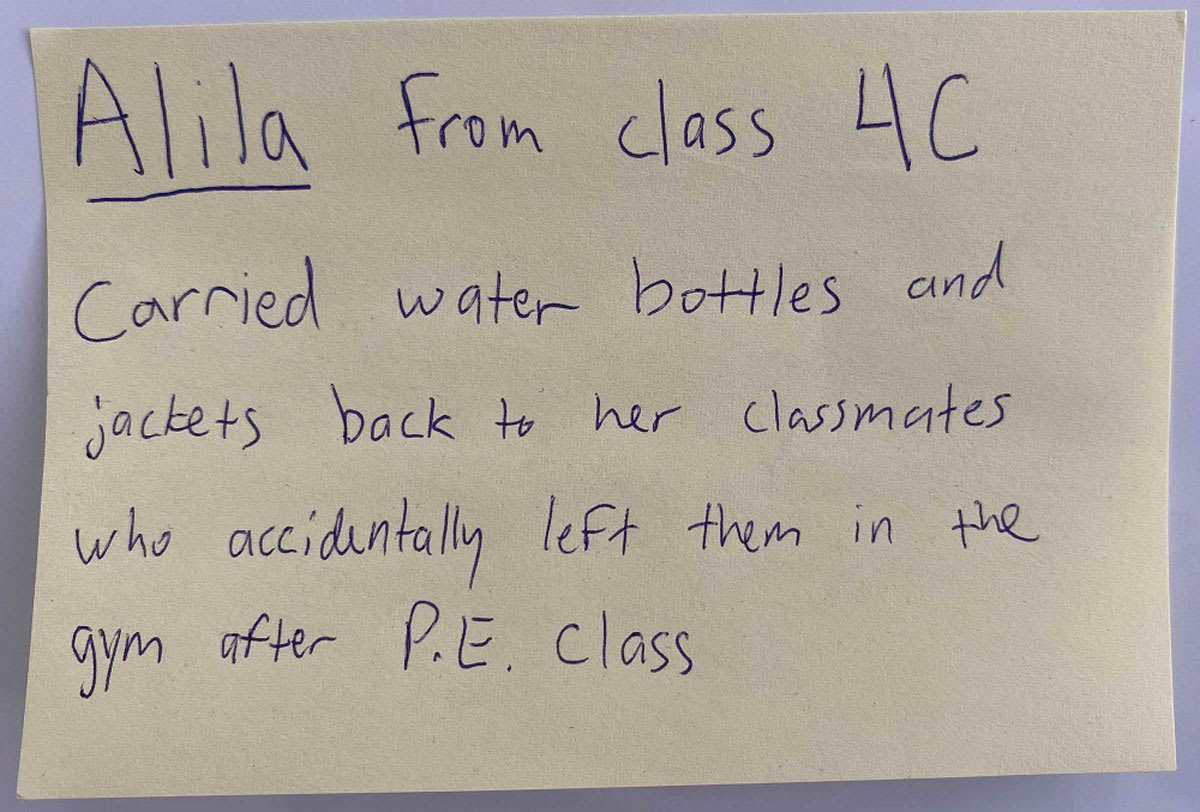 Alila from class 4C
Carried water bottles and
jackets back to her classmates
who accidentally left them in the
gym after P.E. class